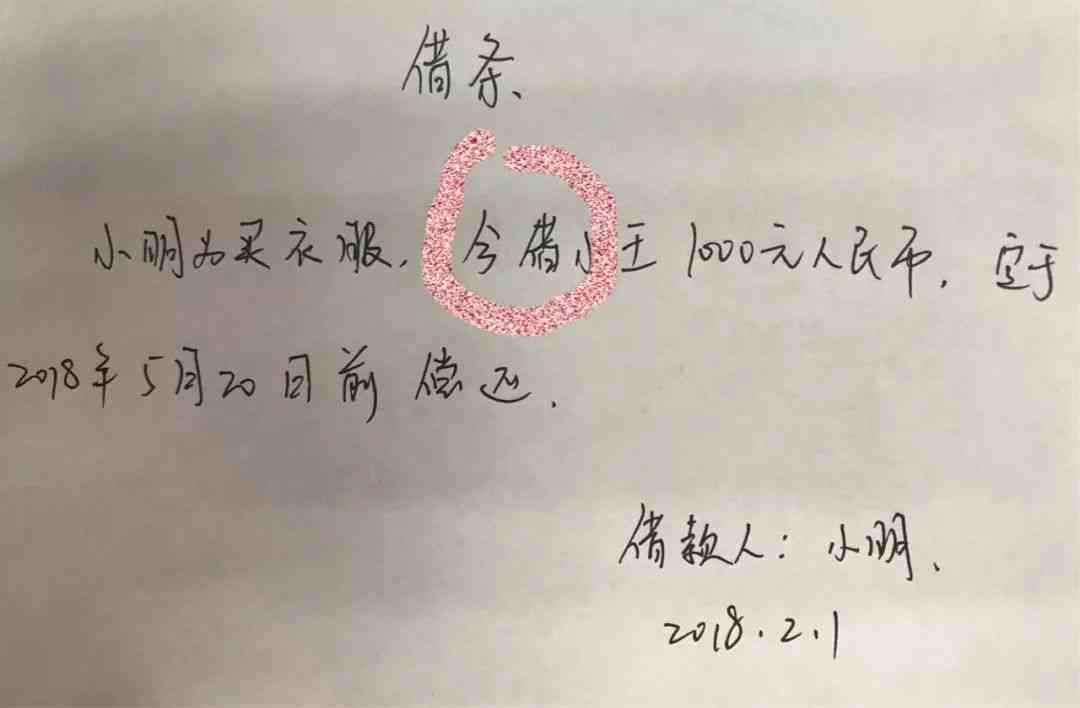 借条、
小明为买衣服, 今借小王1000元人民币, 定于
2018年5月20日前偿还.
借款人: 小明、
2018.2.1